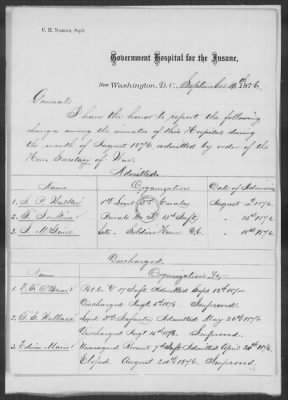 C. H. Nichols, Supt.
Government Hospital for the Insane,
Near Washington, D.C., September 19th 1876.
General:
I have the honor to report the following
changes among the inmates of this Hospital during
the month of August 1876, admitted by order of the
Hon. Secretary of War.
Admitted.
Name Organization Date of Admission
1 Lieut. Cavalry August 1876.
2 Private Co. D 15th Infty " 15th 1876
3 late Soldiers Home, D.C. " 18th 1876.
Discharged.
Name Organization &c.
1 Pvt Co. C 17 Infty Admitted Sept 18th
Discharged Augt. 1876 Improved.
2 Wallace Lieut. Infantry Admitted May 20th 1876
Discharged Augt 15th 1876. Improved.
3 Edwin Unassigned Recruit 7th Infty Admitted April 20th 1876.
Eloped August 20th 1876. Improved.